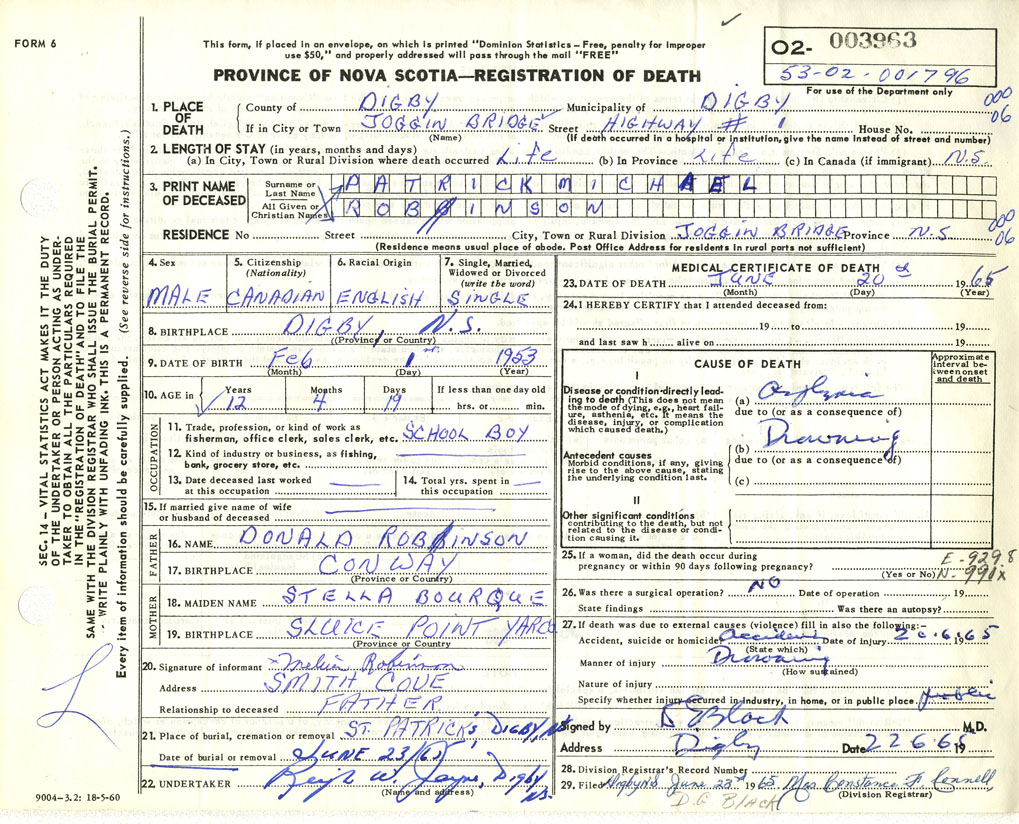 FORM 6
This form, if placed in an envelope, on which is printed "Dominion Statistics – Free, penalty for improper
use $50," and properly addressed will pass through the mail "FREE"
PROVINCE OF NOVA SCOTIA—REGISTRATION OF DEATH
O2- 003963
53-02-001796
For use of the Department only
SEC. 14 – VITAL STATISTICS ACT MAKES IT THE DUTY
OF THE UNDERTAKER OR PERSON ACTING AS UNDER-
TAKER TO OBTAIN ALL THE PARTICULARS REQUIRED
IN THE "REGISTRATION OF DEATH" AND TO FILE THE
SAME WITH THE DIVISION REGISTRAR WHO SHALL ISSUE THE BURIAL PERMIT.
- WRITE PLAINLY WITH UNFADING INK. THIS IS A PERMANENT RECORD.
Every item of information should be carefully supplied. (See reverse side for instructions.)
1. PLACE OF DEATH
County of DIGBY Municipality of DIGBY 000
If in City or Town JOGGIN BRIDGE Street HIGHWAY # 1 House No. 06
(Name) (If death occurred in a hospital or institution, give the name instead of street and number)
2. LENGTH OF STAY (in years, months and days)
(a) In City, Town or Rural Division where death occurred Life (b) In Province Life (c) In Canada (if immigrant) N.S.
3. PRINT NAME OF DECEASED
Surname or Last Name PATRICK MICHAEL
All Given or Christian Names ROBINSON
RESIDENCE No Street City, Town or Rural Division JOGGIN BRIDGE Province N.S 000 06
(Residence means usual place of abode. Post Office Address for residents in rural parts not sufficient)
4. Sex MALE
5. Citizenship (Nationality) CANADIAN
6. Racial Origin ENGLISH
7. Single, Married, Widowed or Divorced (write the word) SINGLE
8. BIRTHPLACE DIGBY, N.S.
(Province or Country)
9. DATE OF BIRTH Feb 1st 1953
(Month) (Day) (Year)
10. AGE in Years 12 Months 4 Days 19 If less than one day old hrs. or min.
OCCUPATION
11. Trade, profession, or kind of work as
fisherman, office clerk, sales clerk, etc. SCHOOL BOY
12. Kind of industry or business, as fishing,
bank, grocery store, etc.
13. Date deceased last worked
at this occupation
14. Total yrs. spent in
this occupation
15. If married give name of wife
or husband of deceased
FATHER
16. NAME DONALD ROBINSON
17. BIRTHPLACE CONWAY
(Province or Country)
MOTHER
18. MAIDEN NAME STELLA BOURQUE
19. BIRTHPLACE SLUICE POINT YARCO
(Province or Country)
20. Signature of informant Robinson
Address SMITH COVE
Relationship to deceased FATHER
21. Place of burial, cremation or removal ST. PATRICKS, DIGBY, NS
Date of burial or removal JUNE 23/65
22. UNDERTAKER W. Jayne, Digby NS.
(Name and address)
9004-3.2: 18-5-60
MEDICAL CERTIFICATE OF DEATH
23. DATE OF DEATH JUNE 20 1965
(Month) (Day) (Year)
24. I HEREBY CERTIFY that I attended deceased from:
19 to 19
and last saw h alive on 19
CAUSE OF DEATH
Approximate interval between onset and death
I
Disease or condition directly lead-
ing to death (This does not mean
the mode of dying, e.g., heart fail-
ure, asthenia, etc. It means the
disease, injury, or complication
which caused death.)
(a) Asphyxia
due to (or as a consequence of)
(b) Drowning
due to (or as a consequence of)
(c)
Antecedent causes
Morbid conditions, if any, giving
rise to the above cause, stating
the underlying condition last.
II
Other significant conditions
contributing to the death, but not
related to the disease or condi-
tion causing it.
25. If a woman, did the death occur during
pregnancy or within 90 days following pregnancy?
(Yes or No)
E-929.8
N-990x
26. Was there a surgical operation? NO Date of operation 19
State findings Was there an autopsy?
27. If death was due to external causes (violence) fill in also the following:–
Accident, suicide or homicide Accident Date of injury 20.6.65
(State which)
Manner of injury Drowning
(How sustained)
Nature of injury
Specify whether injury occurred in industry, in home, or in public place public
Signed by D G Black M.D.
Address Digby Date 22 6.65 19
28. Division Registrar's Record Number
29. Filed June 23rd 1965 Mrs Constance F. Connell
D.G Black (Division Registrar)